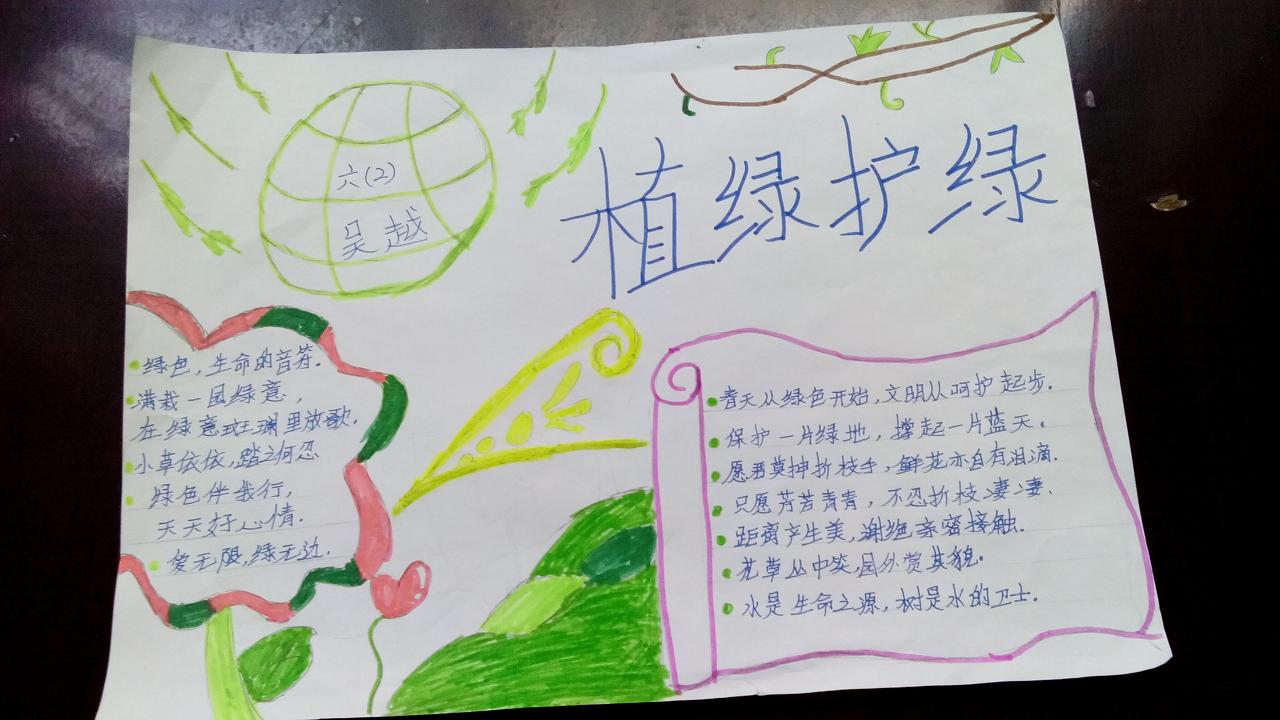 六(2)
吴越
植绿护绿
绿色,生命的音符.
满栽一园绿意,
在绿意斑斓里放歌.
小草依依,踏之何忍
绿色伴我行,
天天好心情.
爱无限,绿无边.
春天从绿色开始,文明从呵护起步.
保护一片绿地,撑起一片蓝天.
愿君莫伸折枝手,鲜花亦自有泪滴.
只愿芳芳青青,不忍折枝凄凄.
距离产生美,谢绝亲密接触.
花草丛中笑,园外赏其貌.
水是生命之源,树是水的卫士.